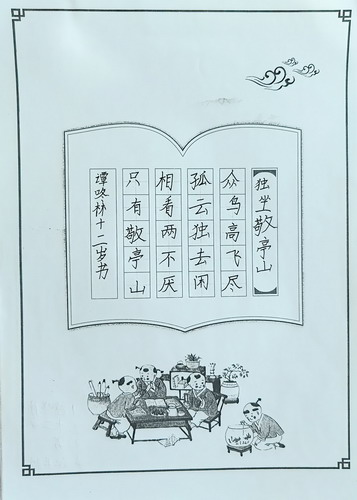 独坐敬亭山
众鸟高飞尽
孤云独去闲
相看两不厌
只有敬亭山
谭咚林十二岁书